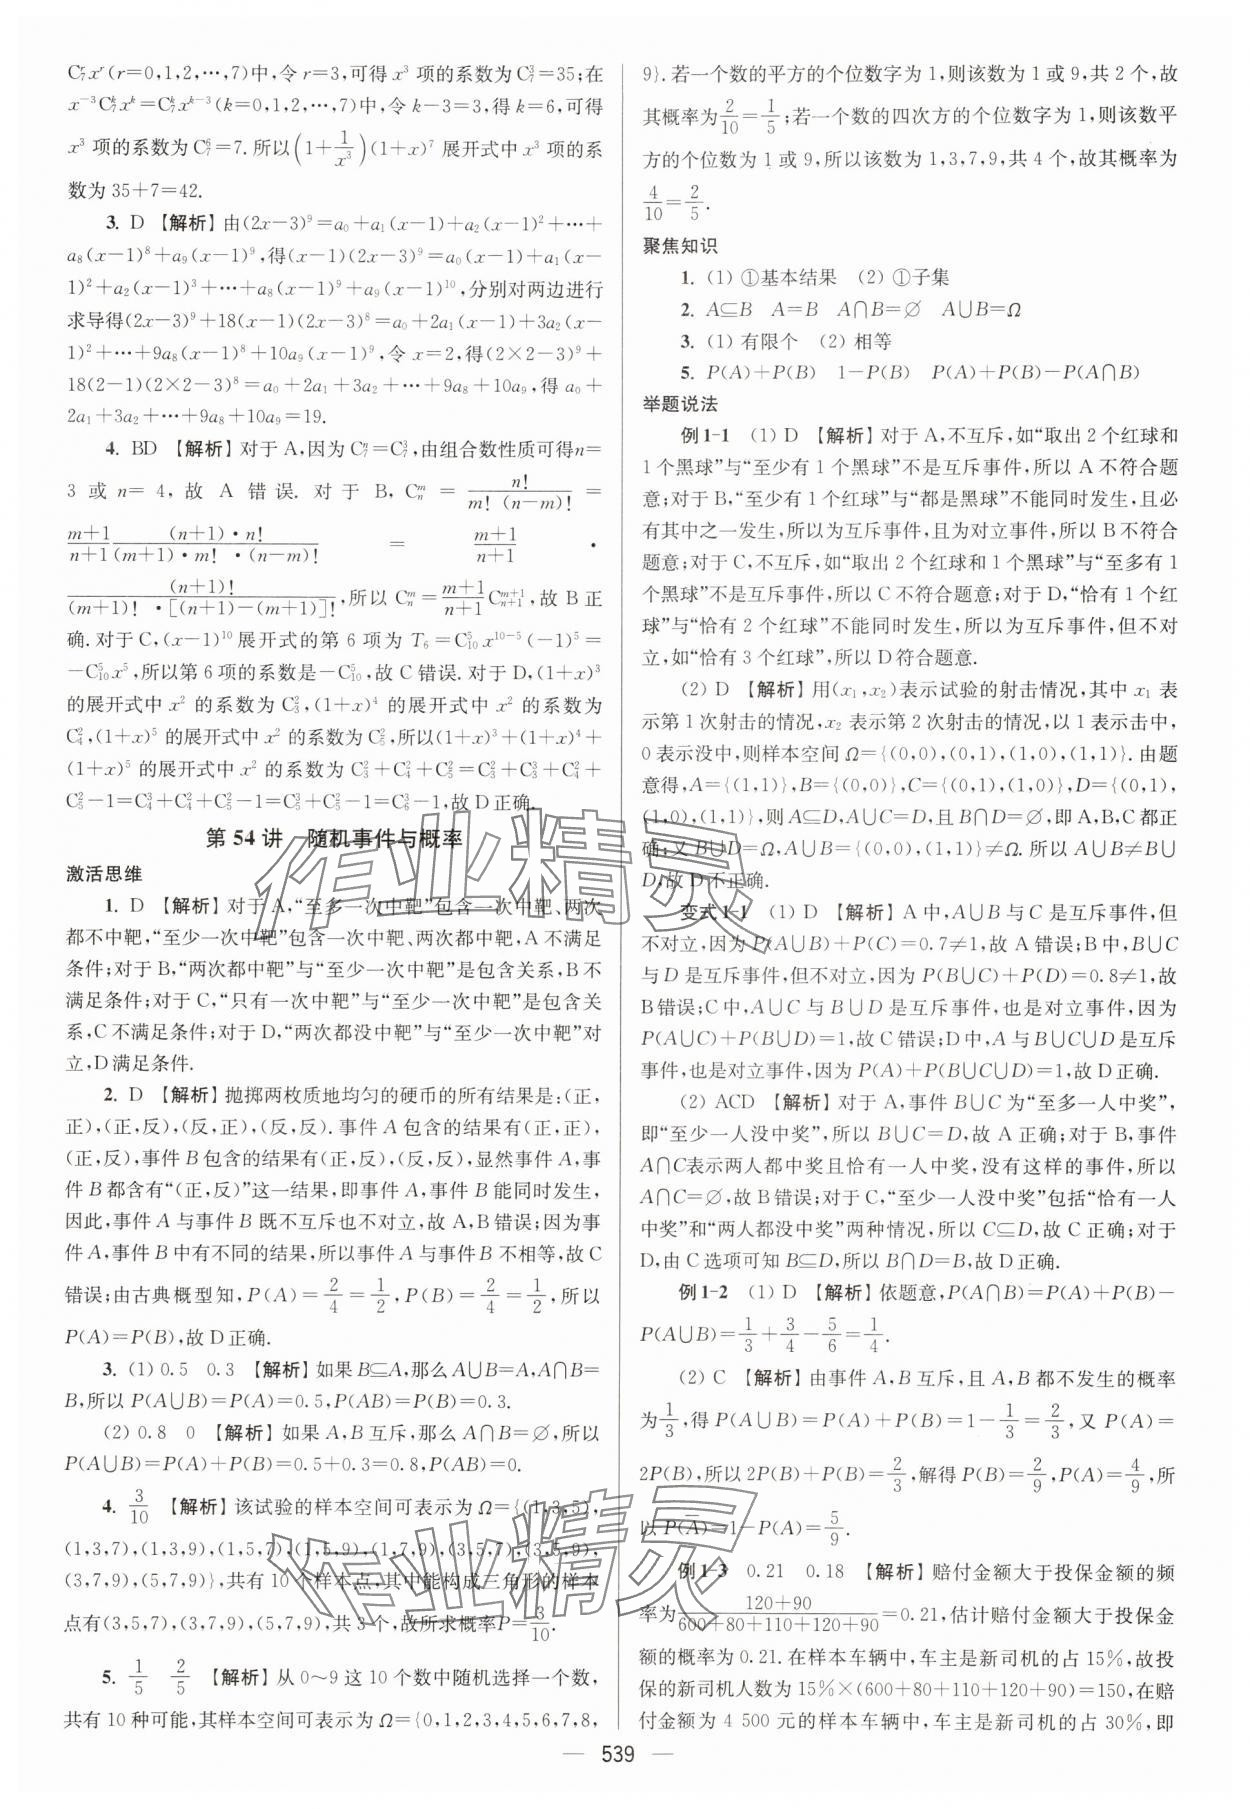 C₇ʳxʳ(r=0,1,2,…,7)中,令 r=3,可得 x³ 项的系数为 C₇³=35;在
x⁻³C₇ᵏxᵏ=C₇ᵏxᵏ⁻³(k=0,1,2,…,7)中,令 k-3=3,得 k=6,可得
x³ 项的系数为 C₇⁶=7.所以(1+1/x³)(1+x)⁷ 展开式中 x³ 项的系
数为 35+7=42.
3. D 【解析】由(2x-3)⁹=a₀+a₁(x-1)+a₂(x-1)²+…+
a₈(x-1)⁸+a₉(x-1)⁹,得(x-1)(2x-3)⁹=a₀(x-1)+a₁(x-
1)²+a₂(x-1)³+…+a₈(x-1)⁹+a₉(x-1)¹⁰,分别对两边进行
求导得(2x-3)⁹+18(x-1)(2x-3)⁸=a₀+2a₁(x-1)+3a₂(x-
1)²+…+9a₈(x-1)⁸+10a₉(x-1)⁹,令 x=2,得(2×2-3)⁹+
18(2-1)(2×2-3)⁸=a₀+2a₁+3a₂+…+9a₈+10a₉,得 a₀+
2a₁+3a₂+…+9a₈+10a₉=19.
4. BD 【解析】对于 A,因为 C₇ⁿ=C₇³,由组合数性质可得n=
3 或 n= 4, 故 A 错误. 对于 B, Cₙᵐ = n!/(m! (n-m)!) =
(m+1)/(n+1) (n+1)·n!/((m+1)·m! ·(n-m)!) = (m+1)/(n+1) ·
(n+1)!/((m+1)! ·[(n+1)-(m+1)]!),所以 Cₙᵐ=(m+1)/(n+1)Cₙ₊₁ᵐ⁺¹,故 B 正
确.对于 C,(x-1)¹⁰展开式的第 6 项为 T₆=C₁₀⁵x¹⁰⁻⁵(-1)⁵=
-C₁₀⁵x⁵,所以第 6 项的系数是-C₁₀⁵,故 C 错误.对于 D,(1+x)³
的展开式中 x² 的系数为 C₃²,(1+x)⁴ 的展开式中 x² 的系数为
C₄²,(1+x)⁵ 的展开式中 x² 的系数为 C₅²,所以(1+x)³+(1+x)⁴+
(1+x)⁵ 的展开式中 x² 的系数为 C₃²+C₄²+C₅²=C₃³+C₃²+C₄²+
C₅²-1=C₄³+C₄²+C₅²-1=C₅³+C₅²-1=C₆³-1,故 D 正确.
第 54 讲 随机事件与概率
激活思维
1. D 【解析】对于 A,“至多一次中靶”包含一次中靶、两次
都不中靶,“至少一次中靶”包含一次中靶、两次都中靶,A 不满足
条件;对于 B,“两次都中靶”与“至少一次中靶”是包含关系,B 不
满足条件;对于 C,“只有一次中靶”与“至少一次中靶”是包含关
系,C 不满足条件;对于 D,“两次都没中靶”与“至少一次中靶”对
立,D 满足条件.
2. D 【解析】抛掷两枚质地均匀的硬币的所有结果是:(正,
正),(正,反),(反,正),(反,反).事件 A 包含的结果有(正,正),
(正,反),事件 B 包含的结果有(正,反),(反,反),显然事件 A,事
件 B 都含有“(正,反)”这一结果,即事件 A,事件 B 能同时发生,
因此,事件 A 与事件 B 既不互斥也不对立,故 A,B 错误;因为事
件 A,事件 B 中有不同的结果,所以事件 A 与事件 B 不相等,故 C
错误;由古典概型知,P(A)=2/4=1/2,P(B)=2/4=1/2,所以
P(A)=P(B),故 D 正确.
3. (1) 0.5 0.3 【解析】如果 B⊆A,那么 A∪B=A,A∩B=
B,所以 P(A∪B)=P(A)=0.5,P(AB)=P(B)=0.3.
(2) 0.8 0 【解析】如果 A,B 互斥,那么 A∩B=∅,所以
P(A∪B)=P(A)+P(B)=0.5+0.3=0.8,P(AB)=0.
4. 3/10 【解析】该试验的样本空间可表示为 Ω={(1,3,5),
(1,3,7),(1,3,9),(1,5,7),(1,5,9),(1,7,9),(3,5,7),(3,5,9),
(3,7,9),(5,7,9)},共有 10 个样本点,其中能构成三角形的样本
点有(3,5,7),(3,7,9),(5,7,9),共 3 个,故所求概率P=3/10.
5. 1/5 2/5 【解析】从 0~9 这 10 个数中随机选择一个数,
共有 10 种可能,其样本空间可表示为 Ω={0,1,2,3,4,5,6,7,8,
9}.若一个数的平方的个位数字为 1,则该数为 1 或 9,共 2 个,故
其概率为2/10=1/5;若一个数的四次方的个位数字为 1,则该数平
方的个位数为 1 或 9,所以该数为 1,3,7,9,共 4 个,故其概率为
4/10=2/5.
聚焦知识
1. (1) ①基本结果 (2) ①子集
2. A⊆B A=B A∩B=∅ A∪B=Ω
3. (1) 有限个 (2) 相等
5. P(A)+P(B) 1-P(B) P(A)+P(B)-P(A∩B)
举题说法
例 1-1 (1) D 【解析】对于 A,不互斥,如“取出 2 个红球和
1 个黑球”与“至少有 1 个黑球”不是互斥事件,所以 A 不符合题
意;对于 B,“至少有 1 个红球”与“都是黑球”不能同时发生,且必
有其中之一发生,所以为互斥事件,且为对立事件,所以 B 不符合
题意;对于 C,不互斥,如“取出 2 个红球和 1 个黑球”与“至多有 1
个黑球”不是互斥事件,所以 C 不符合题意;对于 D,“恰有 1 个红
球”与“恰有 2 个红球”不能同时发生,所以为互斥事件,但不对
立,如“恰有 3 个红球”,所以 D 符合题意.
(2) D 【解析】用(x₁,x₂)表示试验的射击情况,其中 x₁ 表
示第 1 次射击的情况,x₂ 表示第 2 次射击的情况,以 1 表示击中,
0 表示没中,则样本空间 Ω={(0,0),(0,1),(1,0),(1,1)}.由题
意得,A={(1,1)},B={(0,0)},C={(0,1),(1,0)},D={(0,1),
(1,0),(1,1)},则 A⊆D,A∪C=D,且 B∩D=∅,即 A,B,C 都正
确;又 B∪D=Ω,A∪B={(0,0),(1,1)}≠Ω.所以 A∪B≠B∪
D,故 D 不正确.
变式 1-1 (1) D 【解析】A 中,A∪B 与 C 是互斥事件,但
不对立,因为 P(A∪B)+P(C)=0.7≠1,故 A 错误;B 中,B∪C
与 D 是互斥事件,但不对立,因为 P(B∪C)+P(D)=0.8≠1,故
B 错误;C 中,A∪C 与 B∪D 是互斥事件,也是对立事件,因为
P(A∪C)+P(B∪D)=1,故 C 错误;D 中,A 与 B∪C∪D 是互斥
事件,也是对立事件,因为 P(A)+P(B∪C∪D)=1,故 D 正确.
(2) ACD 【解析】对于 A,事件 B∪C 为“至多一人中奖”,
即“至少一人没中奖”,所以 B∪C=D,故 A 正确;对于 B,事件
A∩C表示两人都中奖且恰有一人中奖,没有这样的事件,所以
A∩C=∅,故 B 错误;对于 C,“至少一人没中奖”包括“恰有一人
中奖”和“两人都没中奖”两种情况,所以 C⊆D,故 C 正确;对于
D,由 C 选项可知 B⊆D,所以 B∩D=B,故 D 正确.
例 1-2 (1) D 【解析】依题意,P(A∩B)=P(A)+P(B)-
P(A∪B)=1/3+3/4-5/6=1/4.
(2) C 【解析】由事件 A,B 互斥,且 A,B 都不发生的概率
为1/3,得 P(A∪B)=P(A)+P(B)=1-1/3=2/3,又 P(A)=
2P(B),所以 2P(B)+P(B)=2/3,解得 P(B)=2/9,P(A)=4/9,所
以 P(A̅)=1-P(A)=5/9.
例 1-3 0.21 0.18 【解析】赔付金额大于投保金额的频
率为(120+90)/(600+80+110+120+90)=0.21,估计赔付金额大于投保金
额的概率为 0.21.在样本车辆中,车主是新司机的占 15%,故投
保的新司机人数为 15%×(600+80+110+120+90)=150,在赔
付金额为 4 500 元的样本车辆中,车主是新司机的占 30%,即
— 539 —
作业精灵
作业精灵